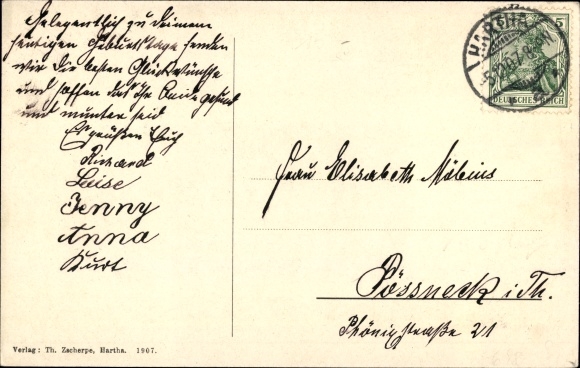 Gelegentlich zu deinem
heutigen Geburtstage senden
wir die besten Glückwünsche
und hoffen daß Ihr beide gesund
und munter seid
Es grüßen Euch
Richard
Luise
Jenny
Anna
Kurt
HARTHA
5
DEUTSCHES REICH
Frau Elisabeth Möbius
Pössneck i. Th.
Phönixstraße 21
Verlag: Th. Zscherpe, Hartha. 1907.